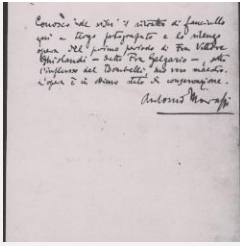 Conosco de visu il ritratto di fanciullo
qui a tergo fotografato e lo ritengo
opera del primo periodo di Fra Vittore
Ghislandi - detto Fra Galgario -, sotto
l'influenza del Bombelli, ma vero maestro.
L'opera è in ottimo stato di conservazione.
Antonio Morassi